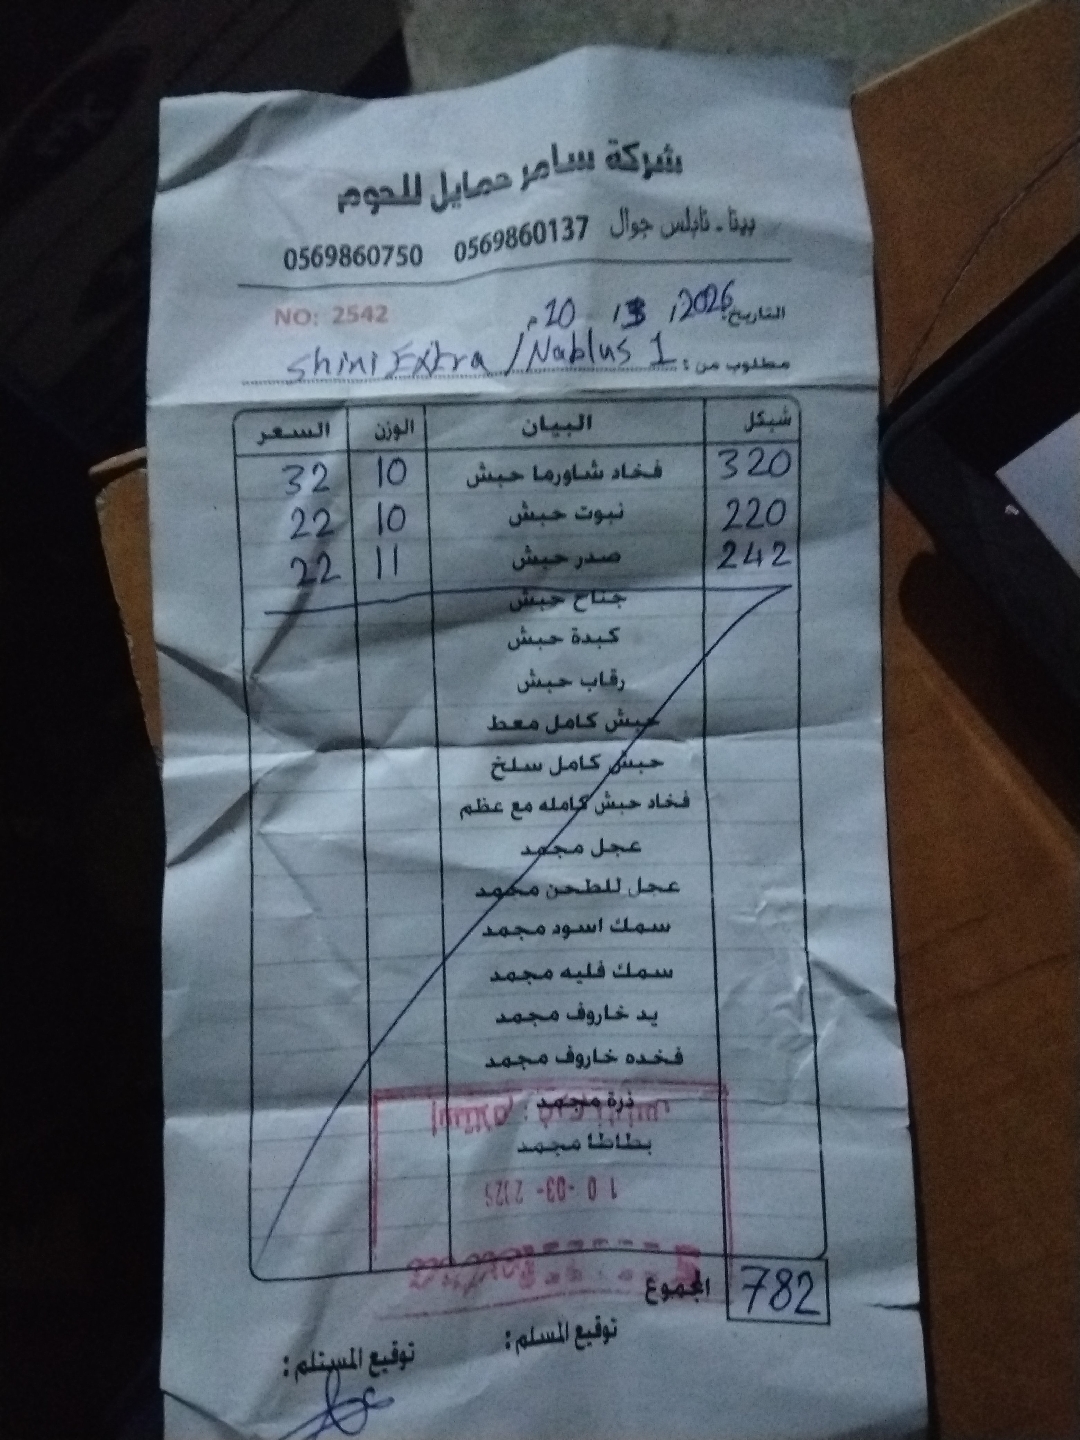 شركة سامر حمايل للحوم
بيتا - نابلس جوال 0569860137 0569860750
التاريخ: 10 / 3 / 2026م NO: 2542
مطلوب من: Shini Extra / Nablus 1
شيكل البيان الوزن السعر
320 فخاد شاورما حبش 10 32
220 نبوت حبش 10 22
242 صدر حبش 11 22
جناح حبش
كبدة حبش
رقاب حبش
حبش كامل معط
حبش كامل سلخ
فخاد حبش كامله مع عظم
عجل مجمد
عجل للطحن مجمد
سمك اسود مجمد
سمك فليه مجمد
يد خاروف مجمد
فخده خاروف مجمد
ذرة مجمد
استلام
بطاطا مجمد
10-03-
المجموع 782
توقيع المسلم:
توقيع المستلم: